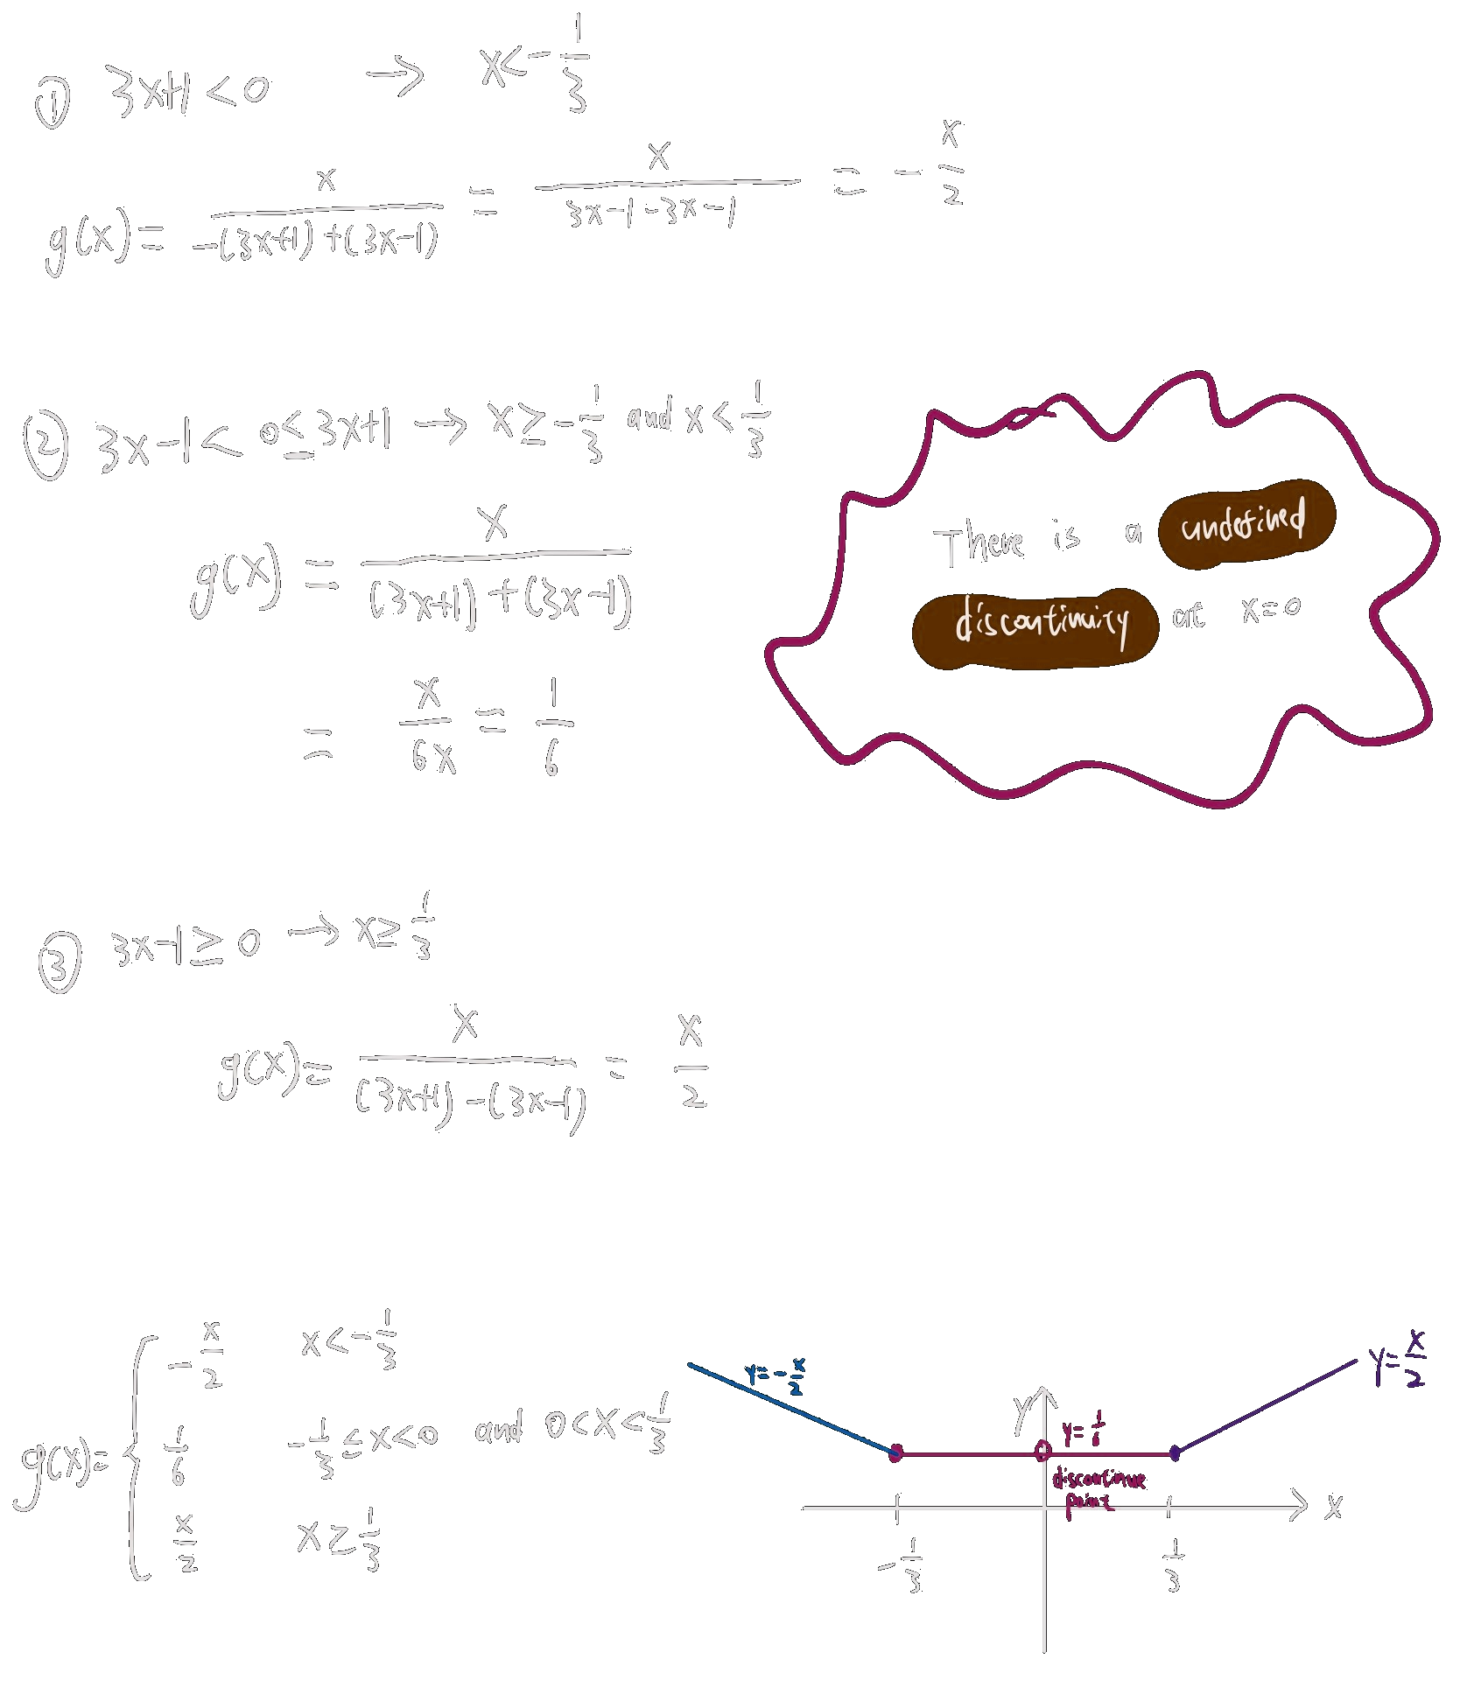 ① 3x+1 < 0 → x < -1/3
g(x) = x/(-(3x+1)+(3x-1)) = x/(3x-1-3x-1) = -x/2
② 3x-1 < 0 ≤ 3x+1 → x ≥ -1/3 and x < 1/3
g(x) = x/((3x+1)+(3x-1))
= x/6x = 1/6
There is a undefined
discontinuity at x=0
③ 3x-1 ≥ 0 → x ≥ 1/3
g(x) = x/((3x+1)-(3x-1)) = x/2
g(x) = {
-x/2 x < -1/3
1/6 -1/3 ≤ x < 0 and 0 < x < 1/3
x/2 x ≥ 1/3
y = -x/2
y = x/2
Y
y = 1/6
discontinue
point
X
-1/3
1/3